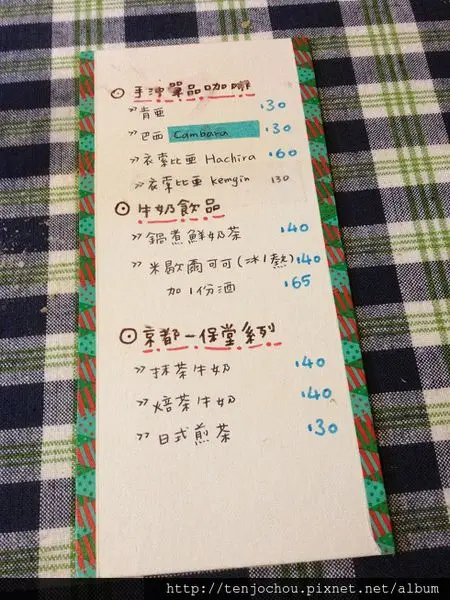 ⊙ 手沖單品咖啡
>> 肯亞 130
>> 巴西 Cambara 130
>> 衣索比亞 Hachira 160
>> 衣索比亞 kemgin 130
⊙ 牛奶飲品
>> 鍋煮鮮奶茶 140
>> 米歇爾可可(冰/熱) 140
加1份酒 165
⊙ 京都一保堂系列
>> 抹茶牛奶 140
>> 焙茶牛奶 140
>> 日式煎茶 130
http://tenjochou.pixnet.net/album